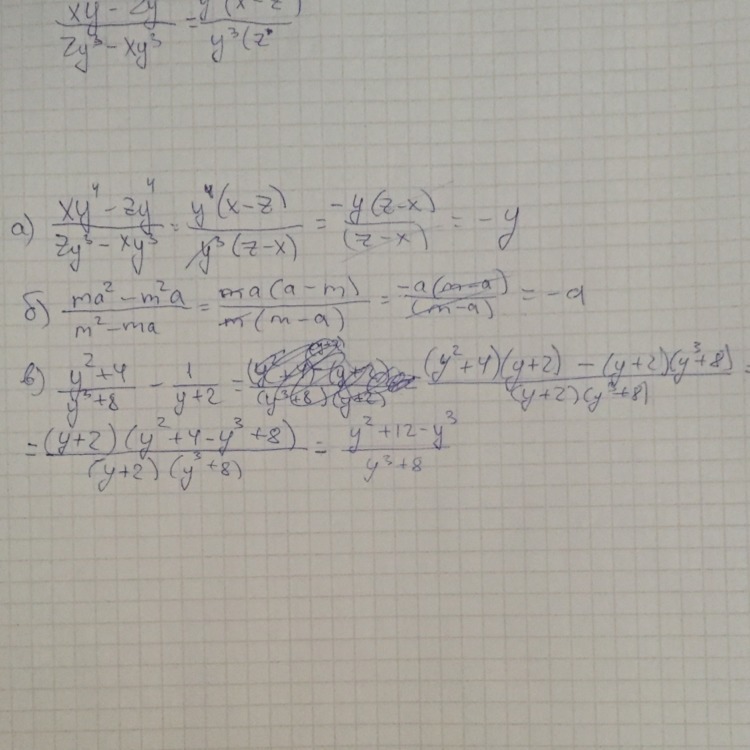 xy - zy / zy³ - xy³ = y(x-z) / y³(z
а) xy⁴ - zy⁴ / zy³ - xy³ = y⁴(x-z) / y³(z-x) = -y(z-x) / (z-x) = -y
б) ma² - m²a / m² - ma = ma(a-m) / m(m-a) = -a(m-a) / (m-a) = -a
в) y²+4 / y³+8 - 1 / y+2 = (y²+4)(y+2) - (y+2)(y³+8) / (y+2)(y³+8) =
= (y+2)(y²+4-y³+8) / (y+2)(y³+8) = y²+12-y³ / y³+8